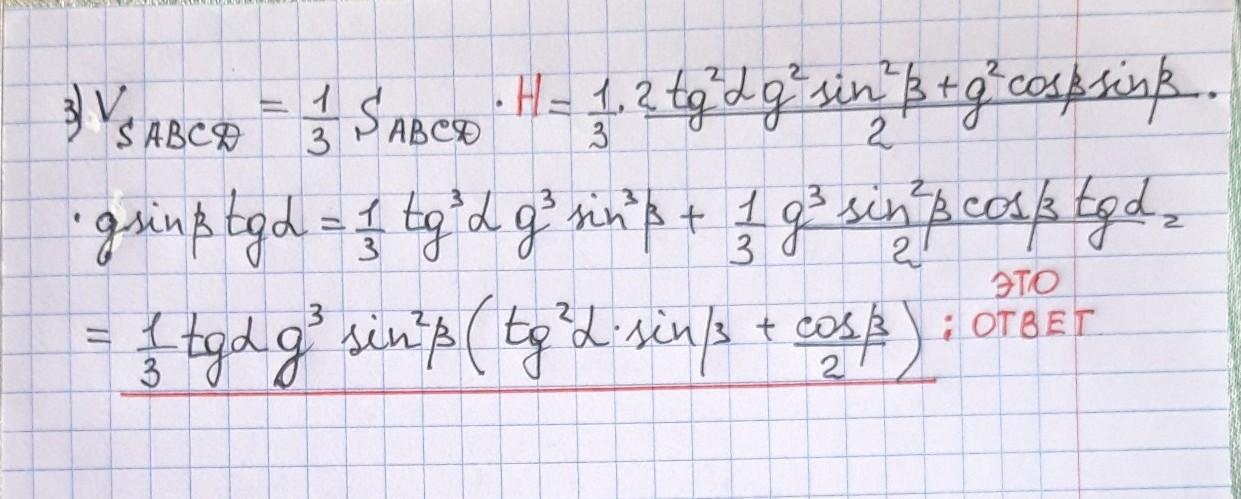 3) V_{SABCD} = \frac{1}{3} S_{ABCD} · H = \frac{1}{3} · \frac{2 tg²α g² sin²β + g² cosβ sinβ}{2} ·
· g sinβ tgα = \frac{1}{3} tg³α g³ sin³β + \frac{1}{3} \frac{g³ sin²β cosβ tgα}{2} =
= \frac{1}{3} tgα g³ sin²β ( tg²α · sinβ + \frac{cosβ}{2} ) ; ЭТО ОТВЕТ